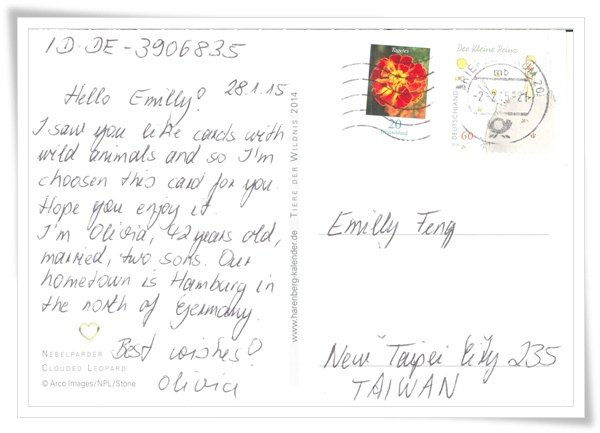 ID.DE-3906835
28.1.15
Hello Emilly!
I saw you like cards with
wild animals and so I'm
choosen this card for you.
Hope you enjoy it.
I'm Olivia, 42 years old,
married, two sons. Our
hometown is Hamburg in
the north of Germany.
Best wishes!
Olivia
NEBELPARDER
CLOUDED LEOPARD
© Arco Images/NPL/Stone
www.harenberg-kalender.de TIERE DER WILDNIS 2014
Tagetes
20
Deutschland
Der Kleine Prinz
DEUTSCHLAND
60
-2.2.15-21
Emilly Feng
New Taipei City 235
TAIWAN